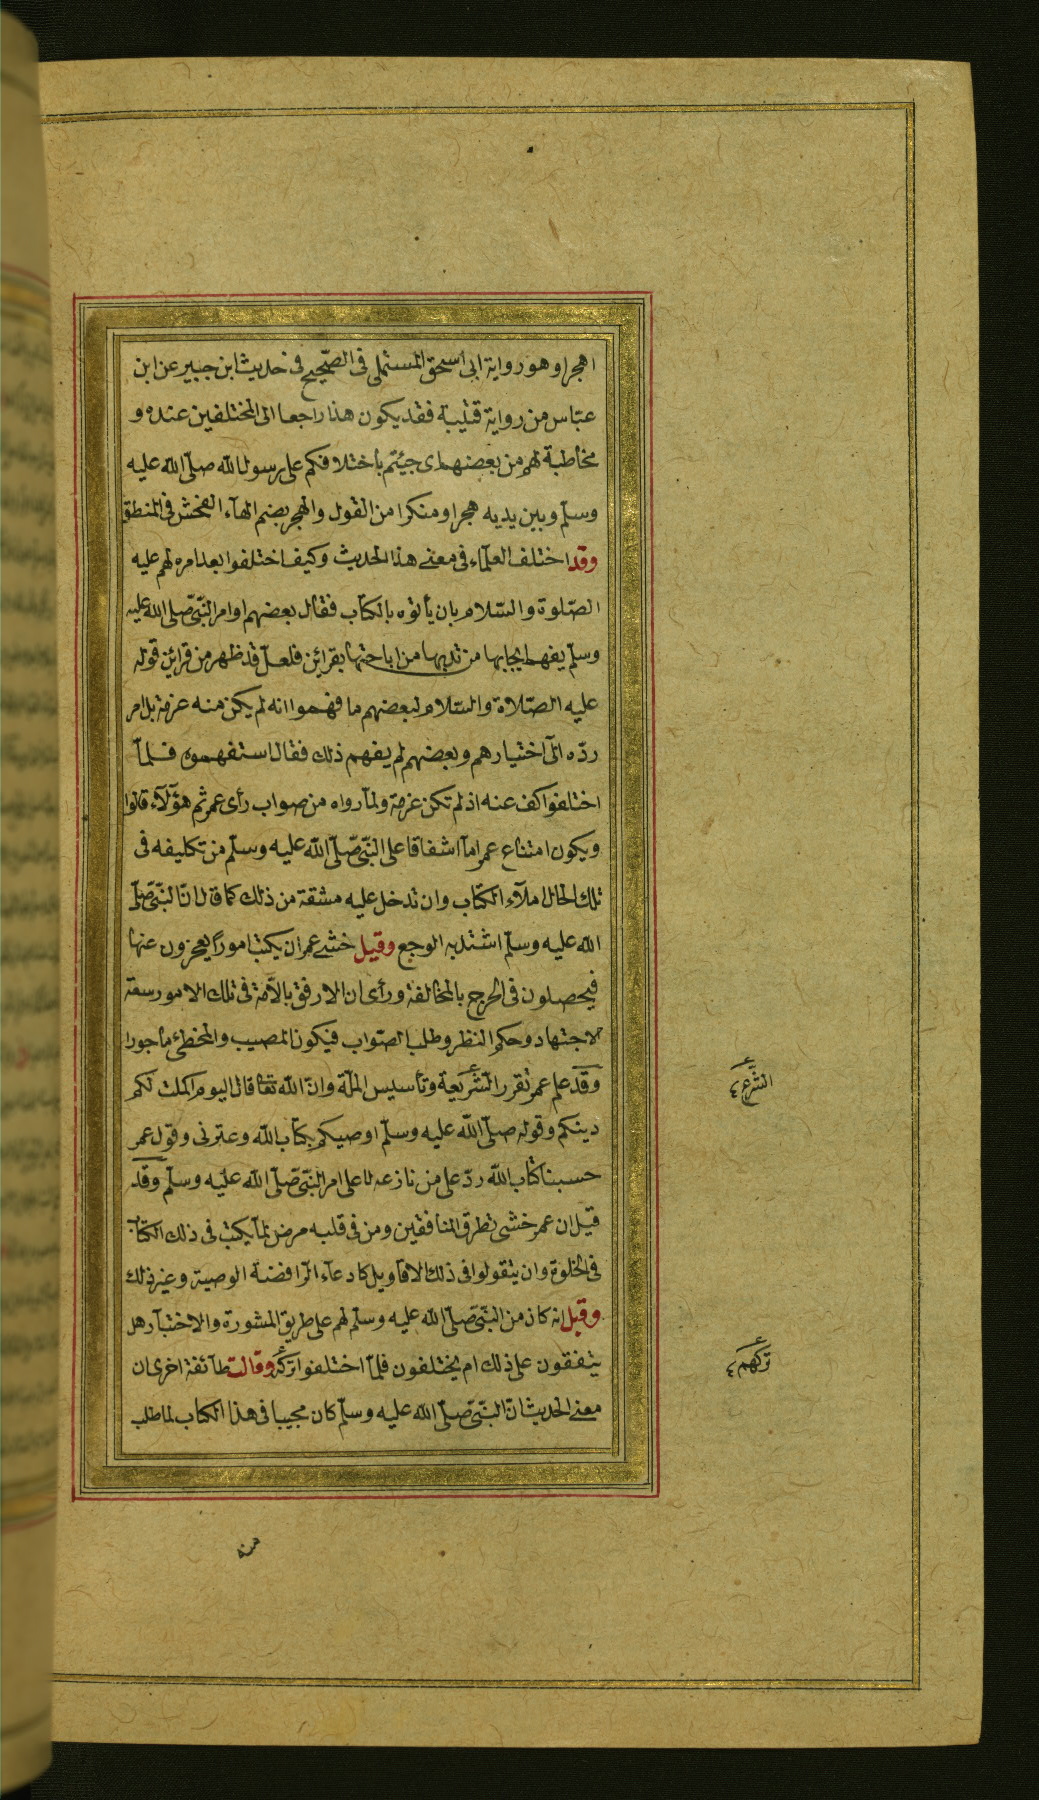 اهجرا وهو رواية ابى اسحق المستملى فى الصّحيح فى حديث ابن جبير عن ابن
عبّاس من رواية قتيبة فقد يكون هذا راجعا الى المختلفين عنده و
مخاطبة لهم من بعضهم اى جيئتم باختلافكم على رسول الله صلّى الله عليه
وسلّم وبين يديه هجرا ومنكرا من القول والهجر بضم الهآء الفحش فى المنطق
وقد اختلف العلمآء فى معنى هذا الحديث وكيف اختلفوا بعد امره لهم عليه
الصّلوة والسّلام بان يأتوه بالكتاب فقال بعضهم اوامر النّبىّ صلّى الله عليه
وسلّم يفهم ايجابها من ندبها من اباحتها بقرائن فلعلّ قد ظهر من قرائن قوله
عليه الصّلاة والسّلام لبعضهم ما فهموا انه لم يكن منه عزمة بل امر
ردّه الى اختيارهم وبعضهم لم يفهم ذلك فقال استفهموه فلمّا
اختلفوا كف عنه اذ لم تكن عزمة ولما رواه من صواب رأى عمر ثم هؤلآء قالوا
ويكون امتناع عمر امّا اشفاقا على النّبىّ صلّى الله عليه وسلّم من تكليفه فى
تلك الحال املآء الكتاب وان تدخل عليه مشقة من ذلك كما قال انّ النّبىّ صلّى
الله عليه وسلّم اشتد به الوجع وقيل خشى عمر ان يكتب امورا يعجزون عنها
فيحصلون فى الحرج بالمخالفة ورأى ان الارفق بالامّة فى تلك الامور سعة
الاجتهاد وحكم النظر وطلب الصّواب فيكون المصيب والمخطئ مأجورا
وقد علم عمر تقرر الشّريعة وتأسيس الملّة وانّ الله تعا قال اليوم اكملت لكم
دينكم وقوله صلّى الله عليه وسلّم اوصيكم بكتاب الله وعترتى وقول عمر
حسبنا كتاب الله ردّ على من نازعه لا على امر النّبىّ صلّى الله عليه وسلّم وقد
قيل ان عمر خشى تطرق المنافقين ومن فى قلبه مرض لما يكتب فى ذلك الكتاب
فى الخلوة وان يتقولوا فى ذلك الاقاويل كادعآء الرّافضة الوصية وغير ذلك
وقيل انه كان من النّبىّ صلّى الله عليه وسلّم لهم على طريق المشورة والاختبار هل
يتفقون على ذلك ام يختلفون فلمّا اختلفوا تركه وقالت طآئفة اخرى ان
معنى الحديث انّ النّبىّ صلّى الله عليه وسلّم كان مجيبا فى هذا الكتاب لما طلب
الشّرع
تركهم
منه